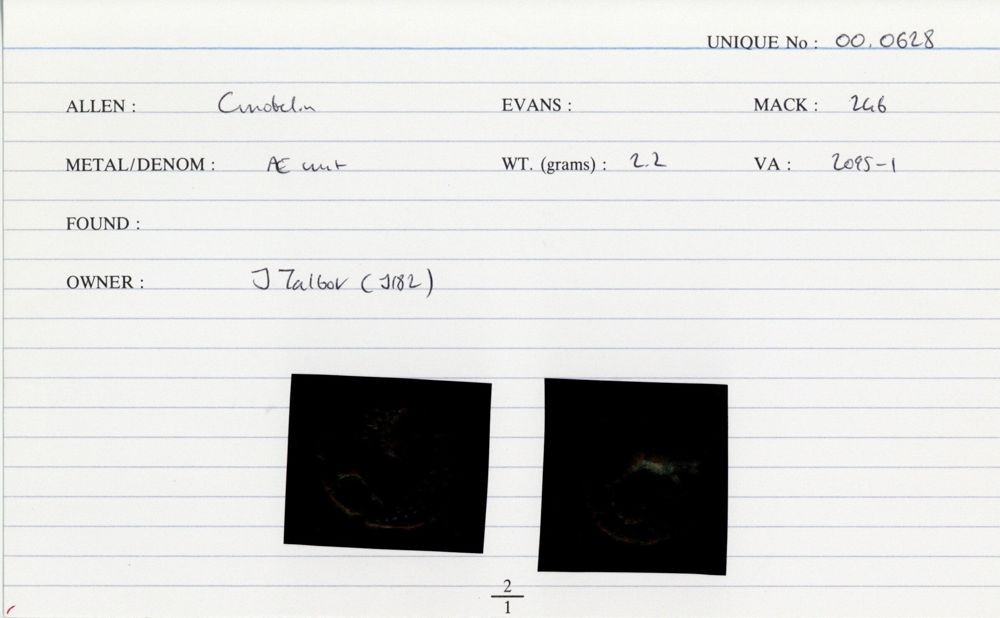 UNIQUE No : 00.0628
ALLEN : Cunobelin EVANS : MACK : 246
METAL/DENOM : Æ unit WT. (grams) : 2.2 VA : 2095-1
FOUND :
OWNER : J Talbot (J182)
2
1